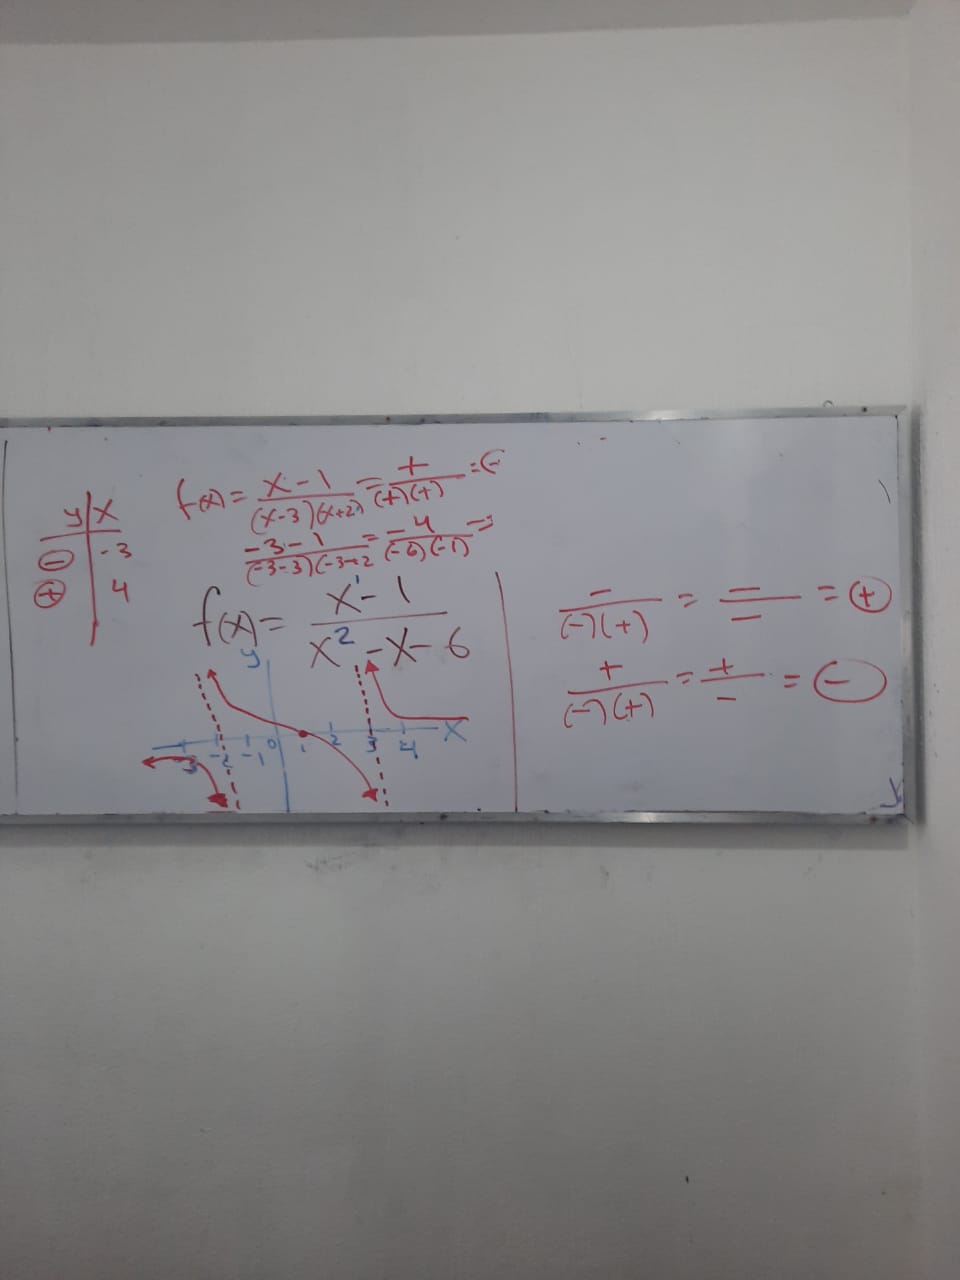 y | x
⊖ | -3
⊕ | 4
f(x) = x-1 / (x-3)(x+2) = + / (+)(+) =
-3-1 / (-3-3)(-3+2 = -4 / (-6)(-1) =
f(x) = x¹-1 / x²-x-6
y
-3 -2 -1 0 1 2 3 4 x
- / (-)(+) = - / - = ⊕
+ / (-)(+) = + / - = ⊖